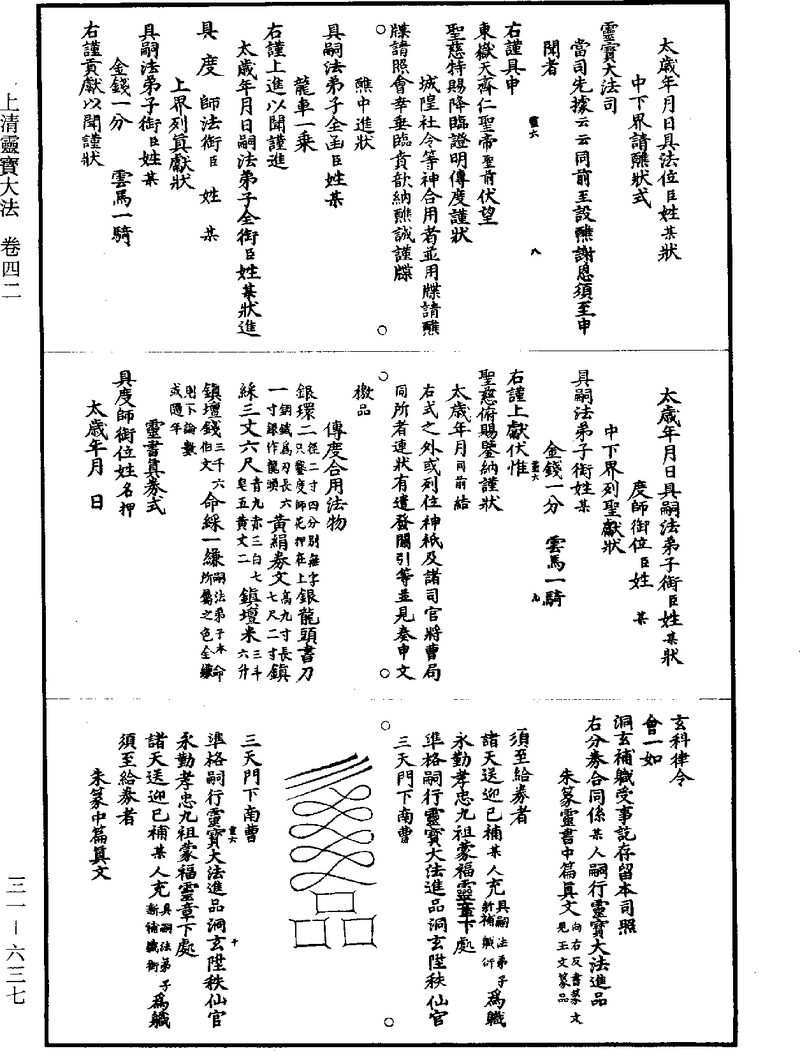 太歲年月日具法位臣姓某狀
中下界請醮狀式
靈寶大法司
當司先據云云同前至設醮謝恩須至申
聞者
右謹具申
東嶽天齊仁聖帝聖前伏望
聖慈特賜降臨證明傳度謹狀
城隍社令等神合用者並用牒請醮
牒請照會幸垂臨賁歆納醮誠謹牒
醮中進狀
具嗣法弟子全函臣姓某
龍車一乘
右謹上進以聞謹進
太歲年月日嗣法弟子全銜臣姓某狀進
具度師法銜臣姓某
上界列真獻狀
具嗣法弟子銜臣姓某
金錢一分 雲馬一騎
右謹貢獻以聞謹狀
太歲年月日具嗣法弟子銜臣姓某狀
度師銜位臣姓某
中下界列聖獻狀
具嗣法弟子銜姓某
金錢一分 雲馬一騎
右謹上獻伏惟
聖慈俯賜鑒納謹狀
太歲年月同前結
右式之外或列位神祇及諸司官將曹局
同所者連狀有遣發關引等並見奏申文
檄品
傳度合用法物
銀環二徑二寸四分別無字只鑿度師花押在上銀龍頭書刀
一鋼鐵為刃長六寸銀作龍頭黃絹券文高九寸長七尺二寸鎮
綵三丈六尺青九赤三白七皂五黃丈二鎮壇米三斗六升
鎮壇錢三千六伯文則不論數或隨年命綵一縑嗣法弟子本命所屬之色全縑
靈書真券式
具度師銜位姓名押
太歲年月 日
玄科律令
會一如
洞玄補職受事訖存留本司照
右分券合同係某人嗣行靈寶大法進品
朱篆靈書中篇真文向右反書篆文見玉文篆品
須至給券者
諸天送迎已補某人充具嗣法弟子新補職銜為職
永勤孝忠九祖蒙福靈章下處
準格嗣行靈寶大法進品洞玄陞秩仙官
三天門下南曹
三天門下南曹
準格嗣行靈寶大法進品洞玄陞秩仙官
永勤孝忠九祖蒙福靈章下處
諸天送迎已補某人充具嗣法弟子新補職銜為職
須至給券者
朱篆中篇真文
上清靈寶大法 卷四二
三一—六三七